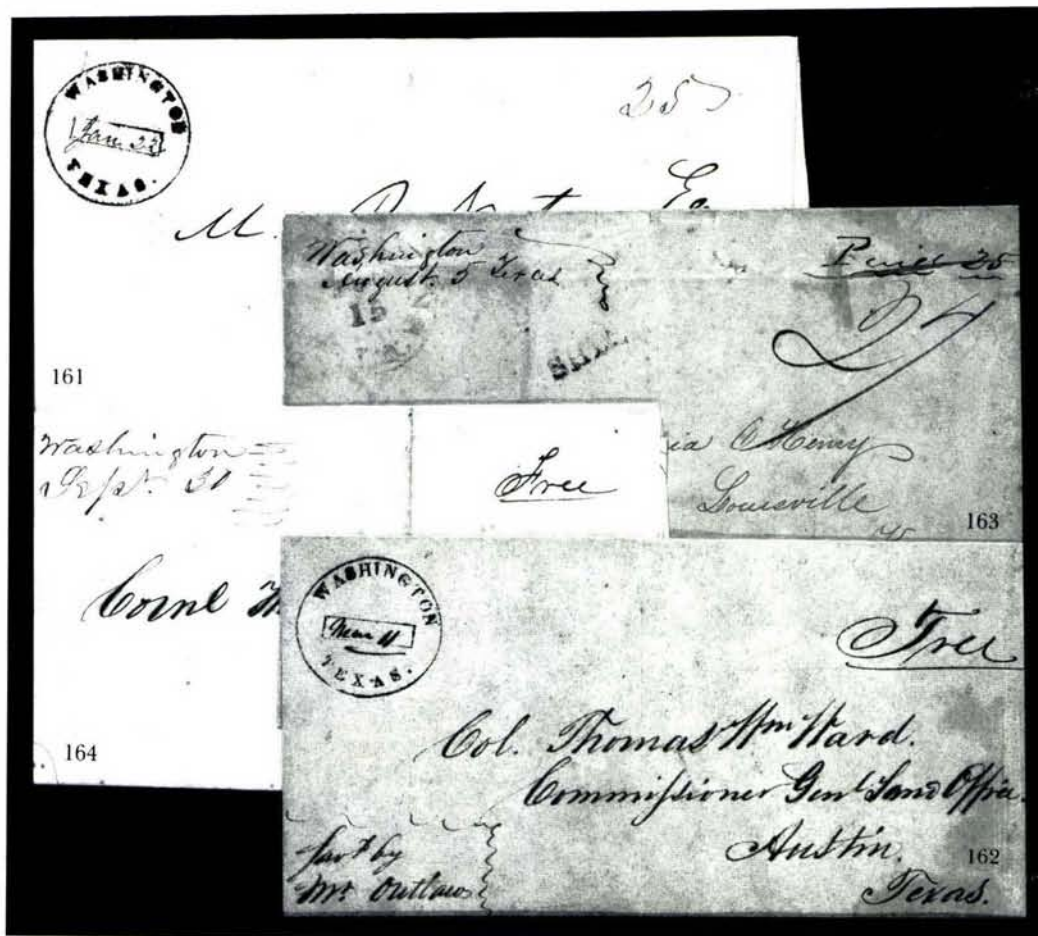 WASHINGTON
Jan. 22
TEXAS.
25
M.
161
Washington
August. 5 Texas
15
SHIP
25
C Henry
Louisville
163
Washington
Sept. 30
Free
Cornl
164
WASHINGTON
Mar 11
TEXAS.
Free
Col. Thomas Wm Ward.
Commissioner Genl Land Office.
Austin.
Texas.
162
favd by
Mr Outlaw